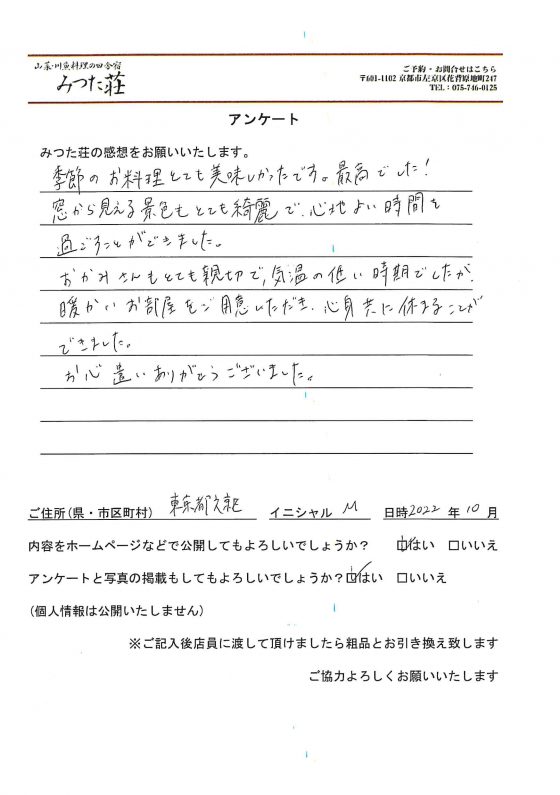 山菜・川魚料理の田舎宿
みつた荘
ご予約・お問合せはこちら
〒601-1102 京都市左京区花背原地町247
TEL：075-746-0125
アンケート
みつた荘の感想をお願いいたします。
季節のお料理とても美味しかったです。最高でした！
窓から見える景色もとても綺麗で、心地よい時間を
過ごすことができました。
おかみさんもとても親切で、気温の低い時期でしたが、
暖かいお部屋をご用意いただき、心身共に休まることが
できました。
お心遣いありがとうございました。
ご住所（県・市区町村） 東京都文京区 イニシャル M 日時2022 年 10 月
内容をホームページなどで公開してもよろしいでしょうか？ ☑はい □いいえ
アンケートと写真の掲載もしてもよろしいでしょうか？☑はい □いいえ
（個人情報は公開いたしません）
※ご記入後店員に渡して頂けましたら粗品とお引き換え致します
ご協力よろしくお願いいたします